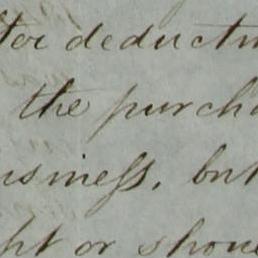 for deductin
the purcha
usiness, but
ht or shoul